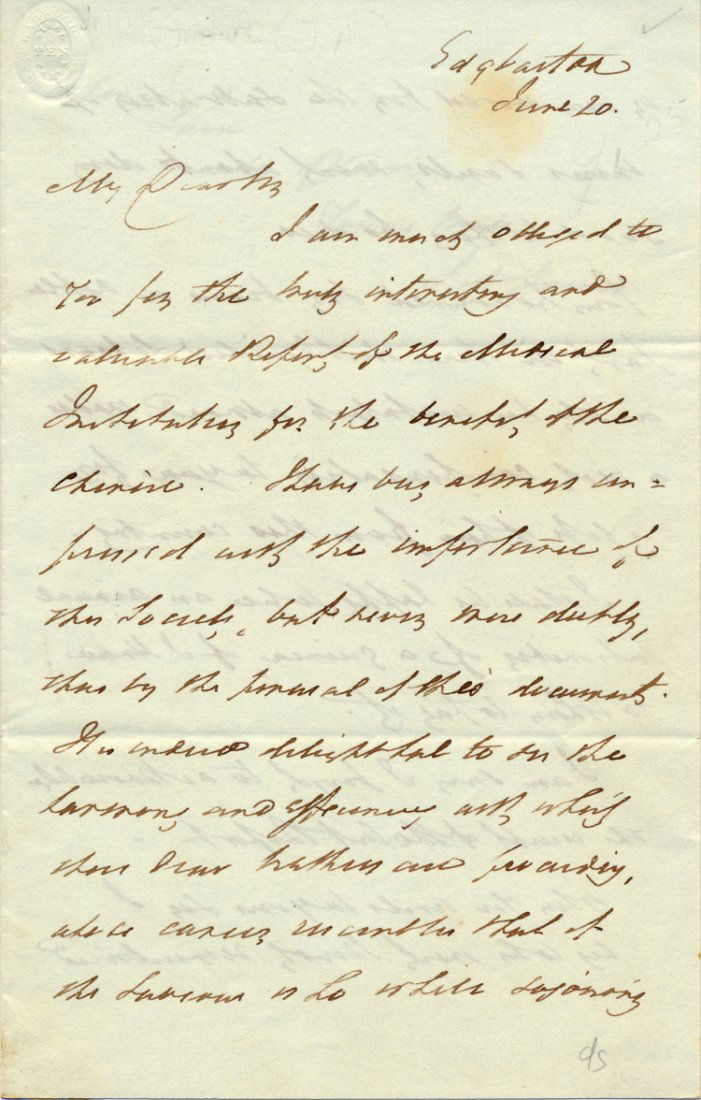 Edgbaston
June 20.
My Dear Sir
I am much obliged to
you for the truly interesting and
valuable Report of the Medical
Institution for the benefit of the
Chinese. I have been always im=
pressed with the importance of
this Society, but never more deeply,
than by the perusal of this document.
It is indeed delightful to see the
harmony and efficiency with which
these dear brethren are proceeding,
whose career resembles that of
the Saviour who while sojourning